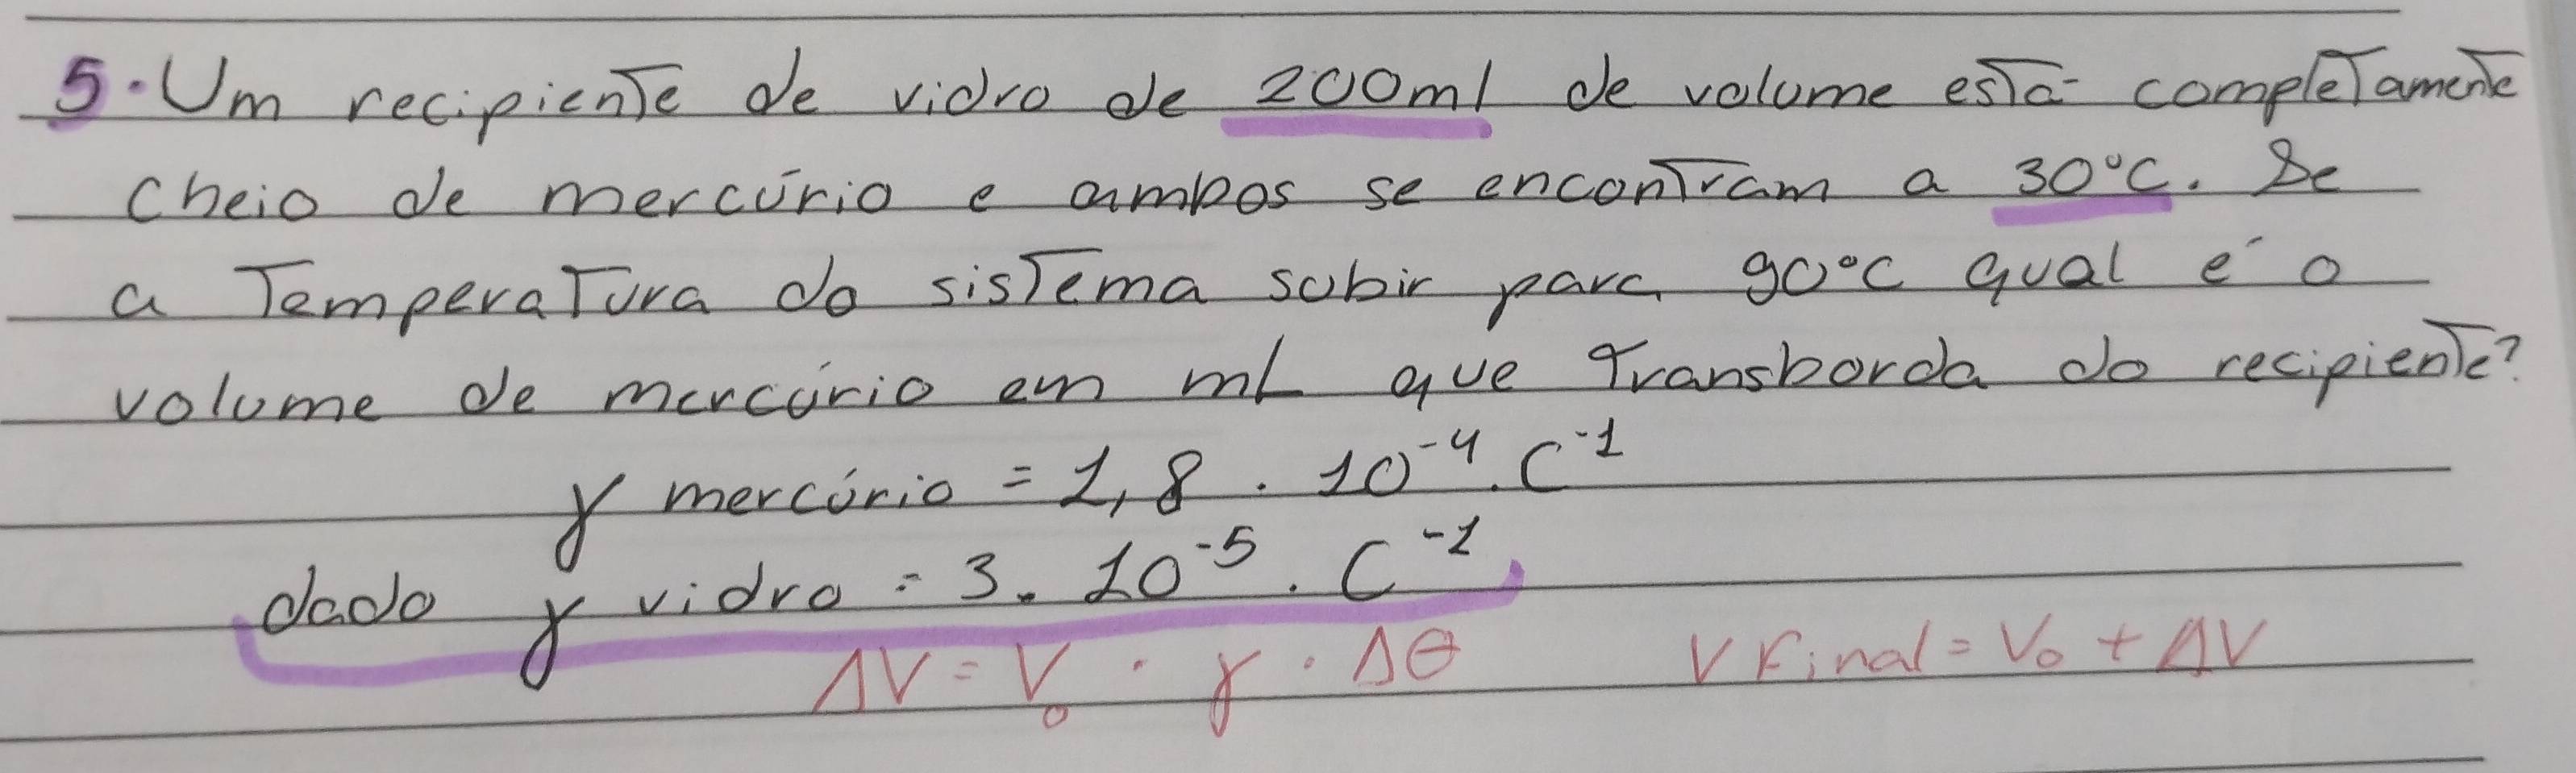 5. Um recipiente de vidro de 200ml de volume está completamente
cheio de mercúrio e ambos se encontram a 30°C. Se
a Temperatura do sistema subir para 90°C qual é o
volume de mercúrio em mL que Transborda do recipiente?
γ mercúrio = 1,8 . 10⁻⁴ . C⁻¹
dado γ vidro = 3. 10⁻⁵ . C⁻¹
ΔV = V₀ . γ . Δθ V Final = V₀ + ΔV